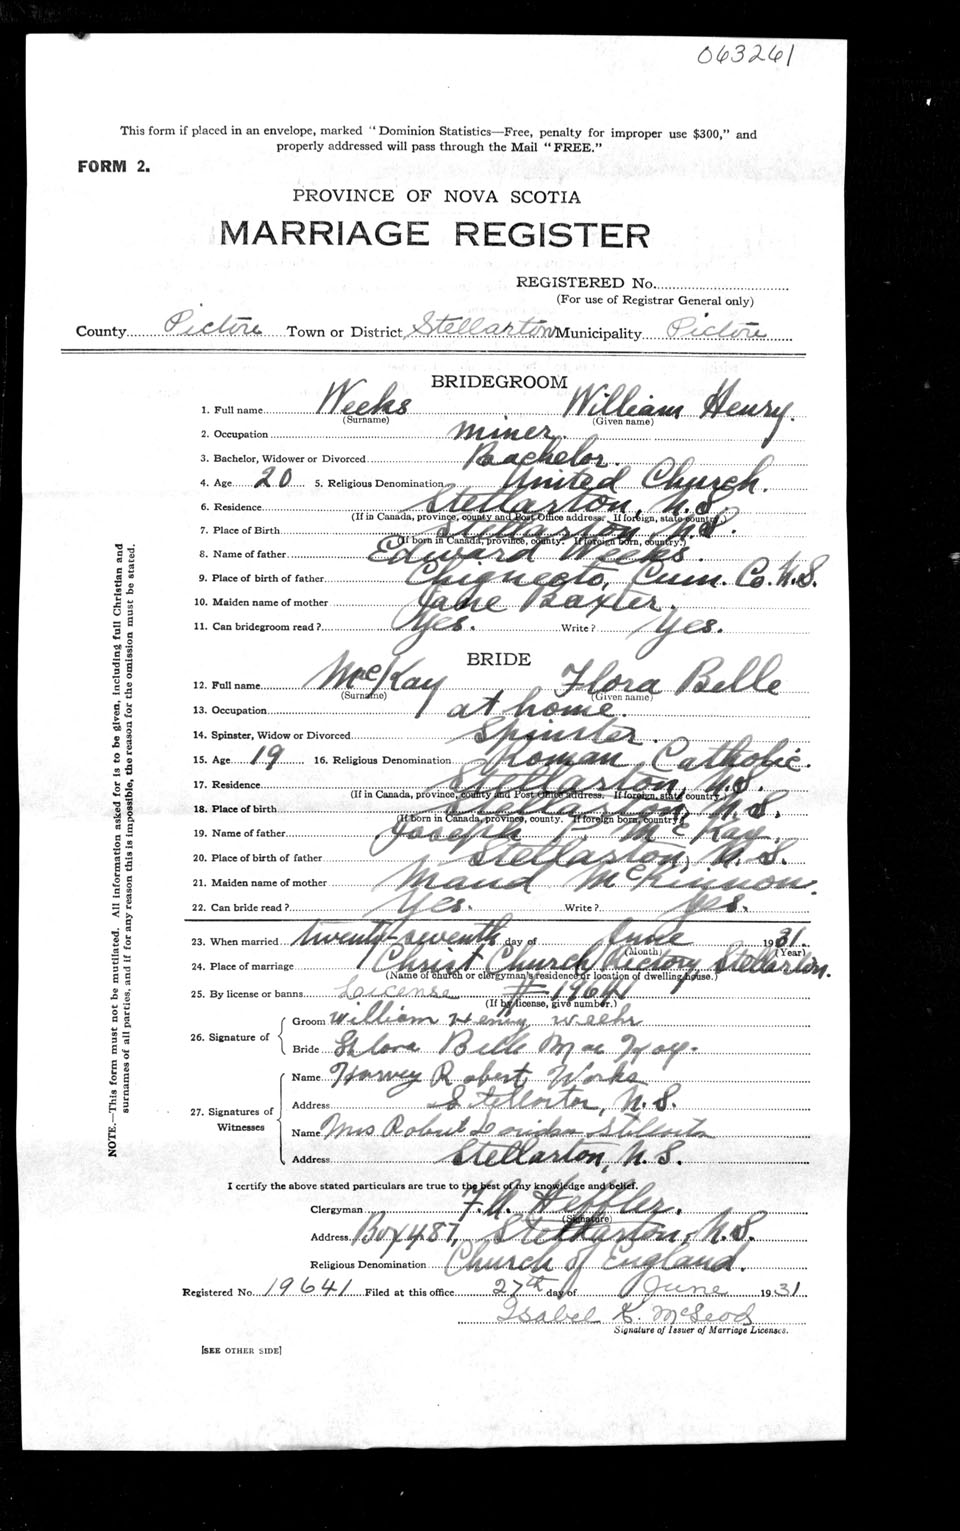 063261
This form if placed in an envelope, marked "Dominion Statistics—Free, penalty for improper use $300," and
properly addressed will pass through the Mail "FREE."
FORM 2.
PROVINCE OF NOVA SCOTIA
MARRIAGE REGISTER
REGISTERED No.
(For use of Registrar General only)
County Pictou Town or District Stellarton Municipality Pictou
BRIDEGROOM
1. Full name Weeks William Henry.
(Surname) (Given name)
2. Occupation miner.
3. Bachelor, Widower or Divorced Bachelor.
4. Age 20 5. Religious Denomination United Church.
6. Residence Stellarton, N.S.
(If in Canada, province, county and Post Office address. If foreign, state country.)
7. Place of Birth Stellarton, N.S.
(If born in Canada, province, county. If foreign born, country.)
8. Name of father Edward Weeks.
9. Place of birth of father Chignecto, Cum. Co. N.S.
10. Maiden name of mother Jane Baxter.
11. Can bridegroom read? Yes. Write? Yes.
BRIDE
12. Full name McKay Flora Belle
(Surname) (Given name)
13. Occupation at home.
14. Spinster, Widow or Divorced Spinster.
15. Age 19 16. Religious Denomination Roman Catholic.
17. Residence Stellarton, N.S.
(If in Canada, province, county and Post Office address. If foreign, state country.)
18. Place of birth Stellarton, N.S.
(If born in Canada, province, county. If foreign born, country.)
19. Name of father Joseph McKay.
20. Place of birth of father Stellarton, N.S.
21. Maiden name of mother Maud McKinnon.
22. Can bride read? Yes. Write? Yes.
23. When married twenty-seventh day of June 1931.
(Month) (Year)
24. Place of marriage Christ Church Rectory Stellarton.
(Name of church or clergyman's residence or location of dwelling house.)
25. By license or banns License # 19641
(If by license, give number.)
26. Signature of
Groom William Henry Weeks
Bride Flora Belle MacKay.
27. Signatures of Witnesses
Name Harvey Robert Works
Address Stellarton, N.S.
Name Mrs Robert Stellarton
Address Stellarton, N.S.
I certify the above stated particulars are true to the best of my knowledge and belief.
Clergyman Heffler.
(Signature)
Address Box 487, Stellarton, N.S.
Religious Denomination Church of England.
Registered No. 19641 Filed at this office 27th day of June 1931
Isabel K. McLeod
Signature of Issuer of Marriage Licenses.
[SEE OTHER SIDE]
NOTE.—This form must not be mutilated. All information asked for is to be given, including full Christian and
surnames of all parties, and if for any reason this is impossible, the reason for the omission must be stated.